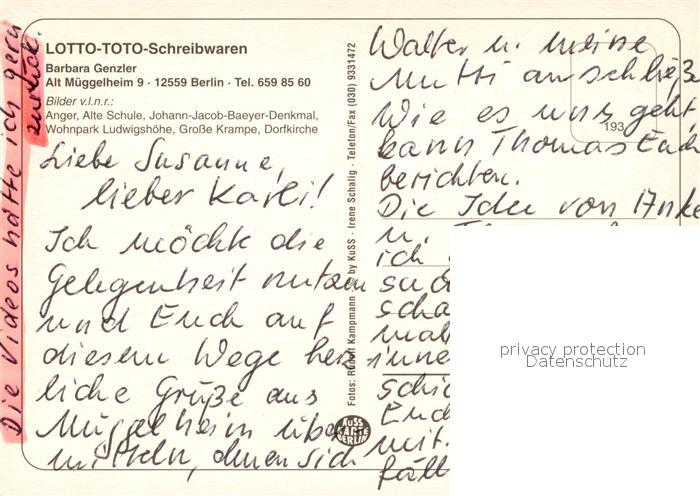 LOTTO-TOTO-Schreibwaren
Barbara Genzler
Alt Müggelheim 9 · 12559 Berlin · Tel. 659 85 60
Bilder v.l.n.r.:
Anger, Alte Schule, Johann-Jacob-Baeyer-Denkmal,
Wohnpark Ludwigshöhe, Große Krampe, Dorfkirche
Liebe Susanne,
lieber Karli!
Ich möchte die
Gelegenheit nutzen
und Euch auf
diesem Wege herz
liche Grüße aus
Müggelheim über
mitteln, denen sich
Die Videos hätte ich gern
zurück.
Fotos: Kampmann © by KuSS · Irene Schalig · Telefon/Fax (030) 9331472
KUSS
KARTE
BERLIN
193
Walter u. meine
Mutti anschließ
Wie es uns geht,
kann Thomas Euch
berichten.
Die Idee von Anke
u.
ich
scha
inne
schi
Euch
mit.
fäll
privacy protection
Datenschutz